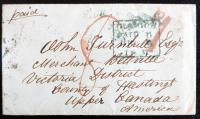 paid
John Turnbull Esqr
Merchant Belleville
Victoria District
County of Hastings
Upper Canada
America